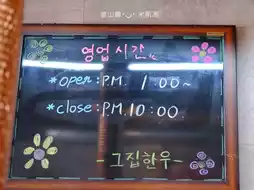 영업시간
*open:P.M. 1:00~
*close:P.M.10:00
-그집한우-